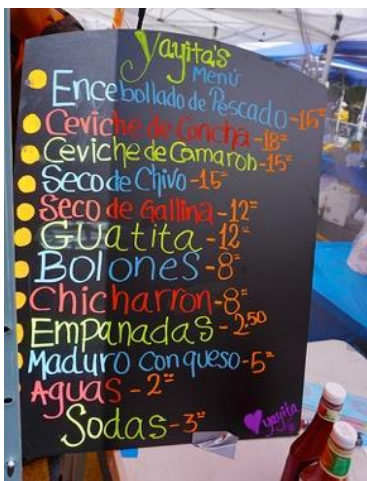 Yayita's
Menú
Encebollado de Pescado - 15=
Ceviche de Concha - 18=
Ceviche de Camaron - 15=
Seco de Chivo - 15=
Seco de Gallina - 12=
GUatitA - 12=
Bolones - 8=
Chicharron - 8=
EmpanadaS - 2.50
Maduro con queso - 5=
Aguas - 2=
Sodas - 3=
yayita